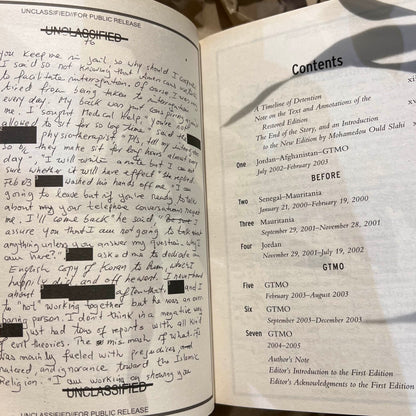 UNCLASSIFIED//FOR PUBLIC RELEASE
UNCLASSIFIED
76
you keep me in jail, so why should I cooperate
I said so not knowing that Americans
to facilitate interrogation. Of course I was
tired from being taken to interrogation
every day. My back was just conspiring against
me. I sought Medical Help. "you're not
allowed to sit for so long time" said the
physiotherapist. "Pls, tell my
so be they make me sit for long hours almost every
day", "I will write a note but I'm not
sure whether it will have effect" she replied
Feb 03 washed his hands off me. "I am
going to leave but if you're ready to talk
about my your telephone conversations request
me, I'll come back" he said "be sure I
assure you that I am not going to talk about
anything unless you answer my question, why I
am here". asked me to dedicate an
English copy of Koran to him, which I
happily did, and off he went. I never heard
about after that and I
to "not" working together but he was an
boring person. I don't think in a negative way
just had tons of reports with all kind
of evil theories. The mish mash of what is
was mainly fueled with prejudices and
hatred, and ignorance toward the Islamic
Religion. "I am working on showing you
UNCLASSIFIED
UNCLASSIFIED//FOR PUBLIC RELEASE
Contents
A Timeline of Detention xi
Note on the Text and Annotations of the
Restored Edition
The End of the Story, and an Introduction
to the New Edition by Mohamedou Ould Slahi
One Jordan–Afghanistan–GTMO
July 2002–February 2003
BEFORE
Two Senegal–Mauritania
January 21, 2000–February 19, 2000
Three Mauritania
September 29, 2001–November 28, 2001
Four Jordan
November 29, 2001–July 19, 2002
GTMO
Five GTMO
February 2003–August 2003
Six GTMO
September 2003–December 2003
Seven GTMO
2004–2005
Author's Note
Editor's Introduction to the First Edition
Editor's Acknowledgments to the First Edition